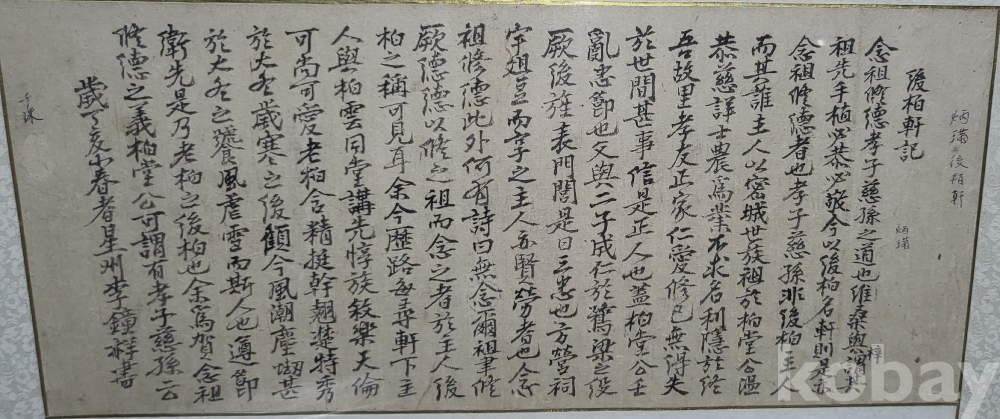 後柏軒記
念祖修德孝子慈孫之道也維桑與梓謂其
祖先手植必恭必敬今以後柏名軒則是亦
念祖修德者也孝子慈孫非後柏主人
而其誰主人以密城世族祖於柏堂公溫
恭慈詳士農爲業不求名利隱於終
吾故里孝友正家仁愛修己無得失
於世間甚事信是正人也蓋柏堂公壬
亂忠節也父與二子成仁於鷺梁之役
厥後旌表門閭是曰三忠也方營祠
宇俎豆而享之主人亦賢勞者也念
祖修德此外何有詩曰無念爾祖聿修
厥德德以修之祖而念之者於主人後
柏之稱可見耳余今歷路每尋軒下主
人與柏雲同堂講先惇族敘樂天倫
可尚可愛老柏含精挺幹翹楚特秀
於大冬歲寒之後顧今風潮塵坳甚
於大冬之饕風虐雪而斯人也遵節
衛先是乃老柏之後柏也余爲賀念祖
修德之義柏堂公可謂有孝子慈孫云
歲丁亥小春者星州李鐘祥書
kobay